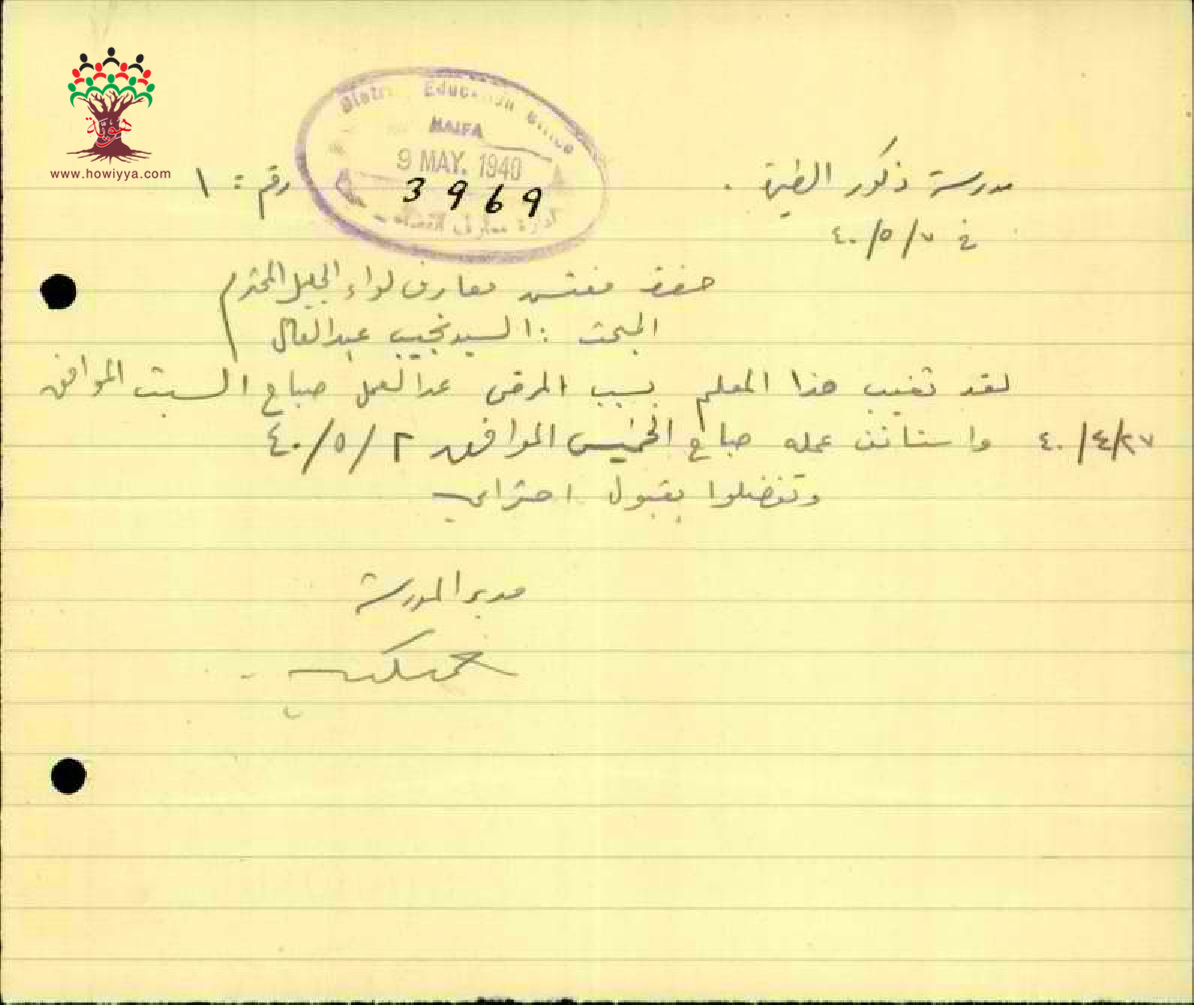 هوية
www.howiyya.com
District Education Office
HAIFA
9 MAY. 1940
3969
ادارة معارف
رقم : ١
مدرسة ذكور الطيرة .
في ٧ /٥ /٤٠
حضرة مفتش معارف لواء الجليل المحترم
المبحث : السيد نجيب عبدالعال
لقد تغيب هذا المعلم بسبب المرض عن العمل صباح السبت الموافق
٤٠/٤/٢٧ واستأنف عمله صباح الخميس الموافق ٢ /٥/ ٤٠
وتفضلوا بقبول احترامي
مدير المدرسة